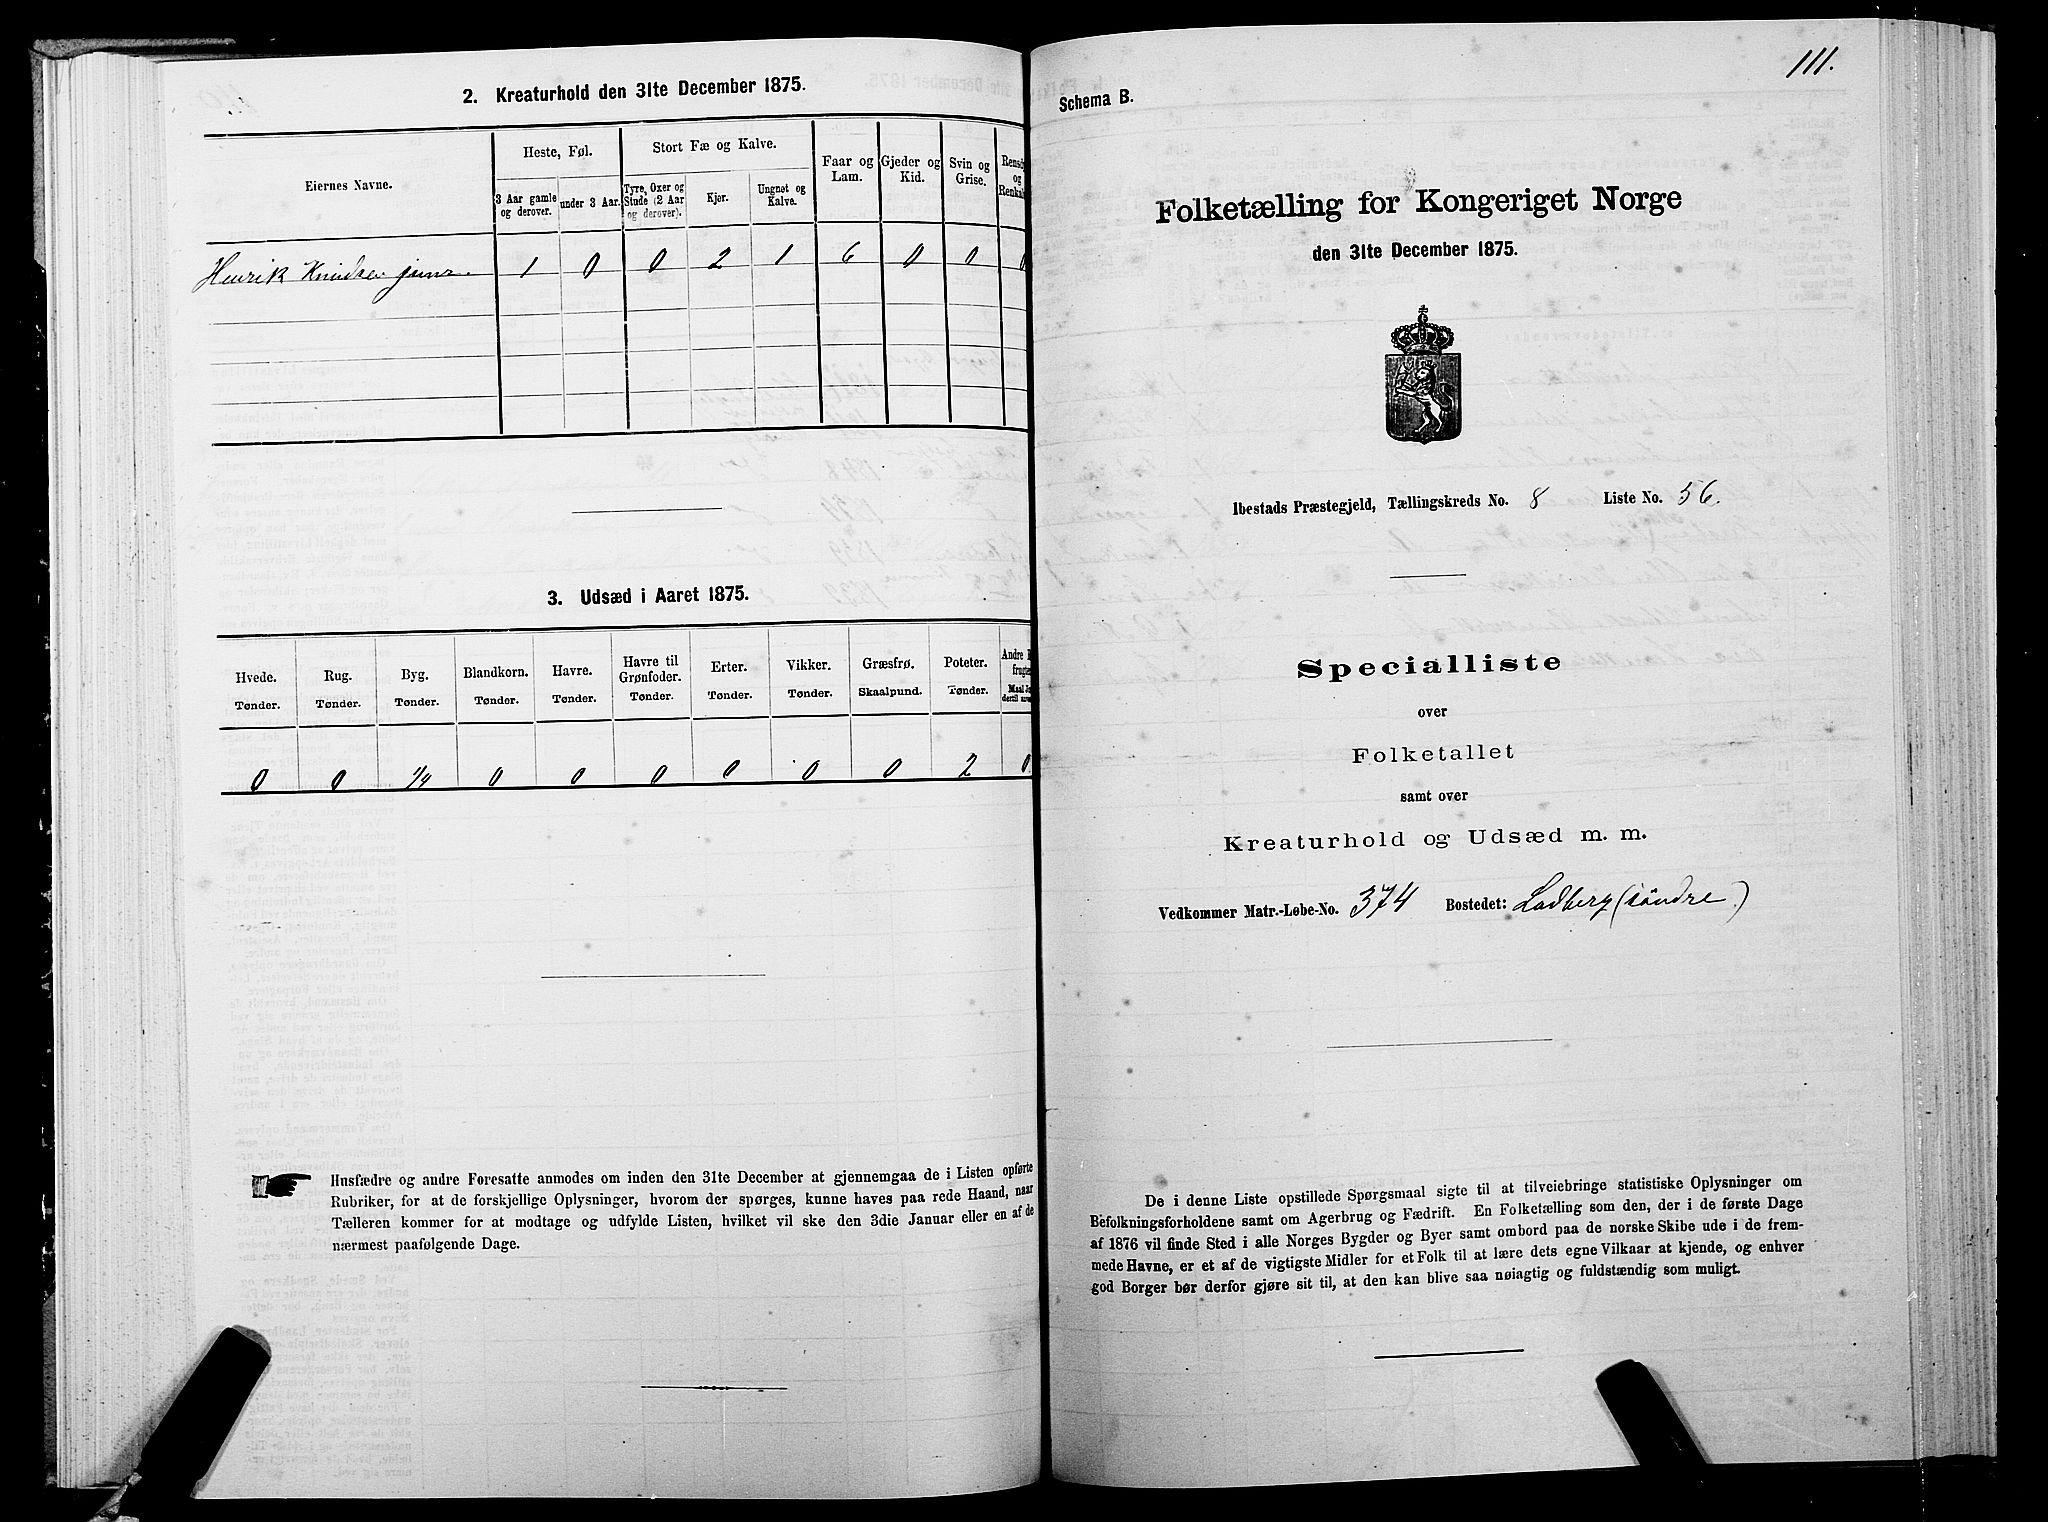 2. Kreaturhold den 31te December 1875.
Eiernes Navne.
Heste, Føl.
Stort Fæ og Kalve.
Faar og Lam.
Gjeder og Kid.
Svin og Grise.
og
3 Aar gamle og derover.
under 3 Aar.
Tyre, Oxer og Stude (2 Aar og derover).
Kjør.
Ungnøt og Kalve.
Henrik Knudsen junr. 1 0 0 2 1 6 0 0 0
3. Udsæd i Aaret 1875.
Hvede. Rug. Byg. Blandkorn. Havre. Havre til Grønfoder. Erter. Vikker. Græsfrø. Poteter. Andre
Tønder. Tønder. Tønder. Tønder. Tønder. Tønder. Tønder. Tønder. Skaalpund. Tønder.
0 0 1/4 0 0 0 0 0 0 2 0
Husfædre og andre Foresatte anmodes om inden den 31te December at gjennemgaa de i Listen opførte
Rubriker, for at de forskjellige Oplysninger, hvorom der spørges, kunne haves paa rede Haand, naar
Tælleren kommer for at modtage og udfylde Listen, hvilket vil ske den 3die Januar eller en af de
nærmest paafølgende Dage.
111.
Schema B.
Folketælling for Kongeriget Norge
den 31te December 1875.
Ibestads Præstegjeld, Tællingskreds No. 8 Liste No. 56.
Specialliste
over
Folketallet
samt over
Kreaturhold og Udsæd m. m.
Vedkommer Matr.-Løbe-No. 374 Bostedet: Ladberg (søndre)
De i denne Liste opstillede Spørgsmaal sigte til at tilveiebringe statistiske Oplysninger om
Befolkningsforholdene samt om Agerbrug og Fædrift. En Folketælling som den, der i de første Dage
af 1876 vil finde Sted i alle Norges Bygder og Byer samt ombord paa de norske Skibe ude i de frem-
mede Havne, er et af de vigtigste Midler for et Folk til at lære dets egne Vilkaar at kjende, og enhver
god Borger bør derfor gjøre sit til, at den kan blive saa nøiagtig og fuldstændig som muligt.